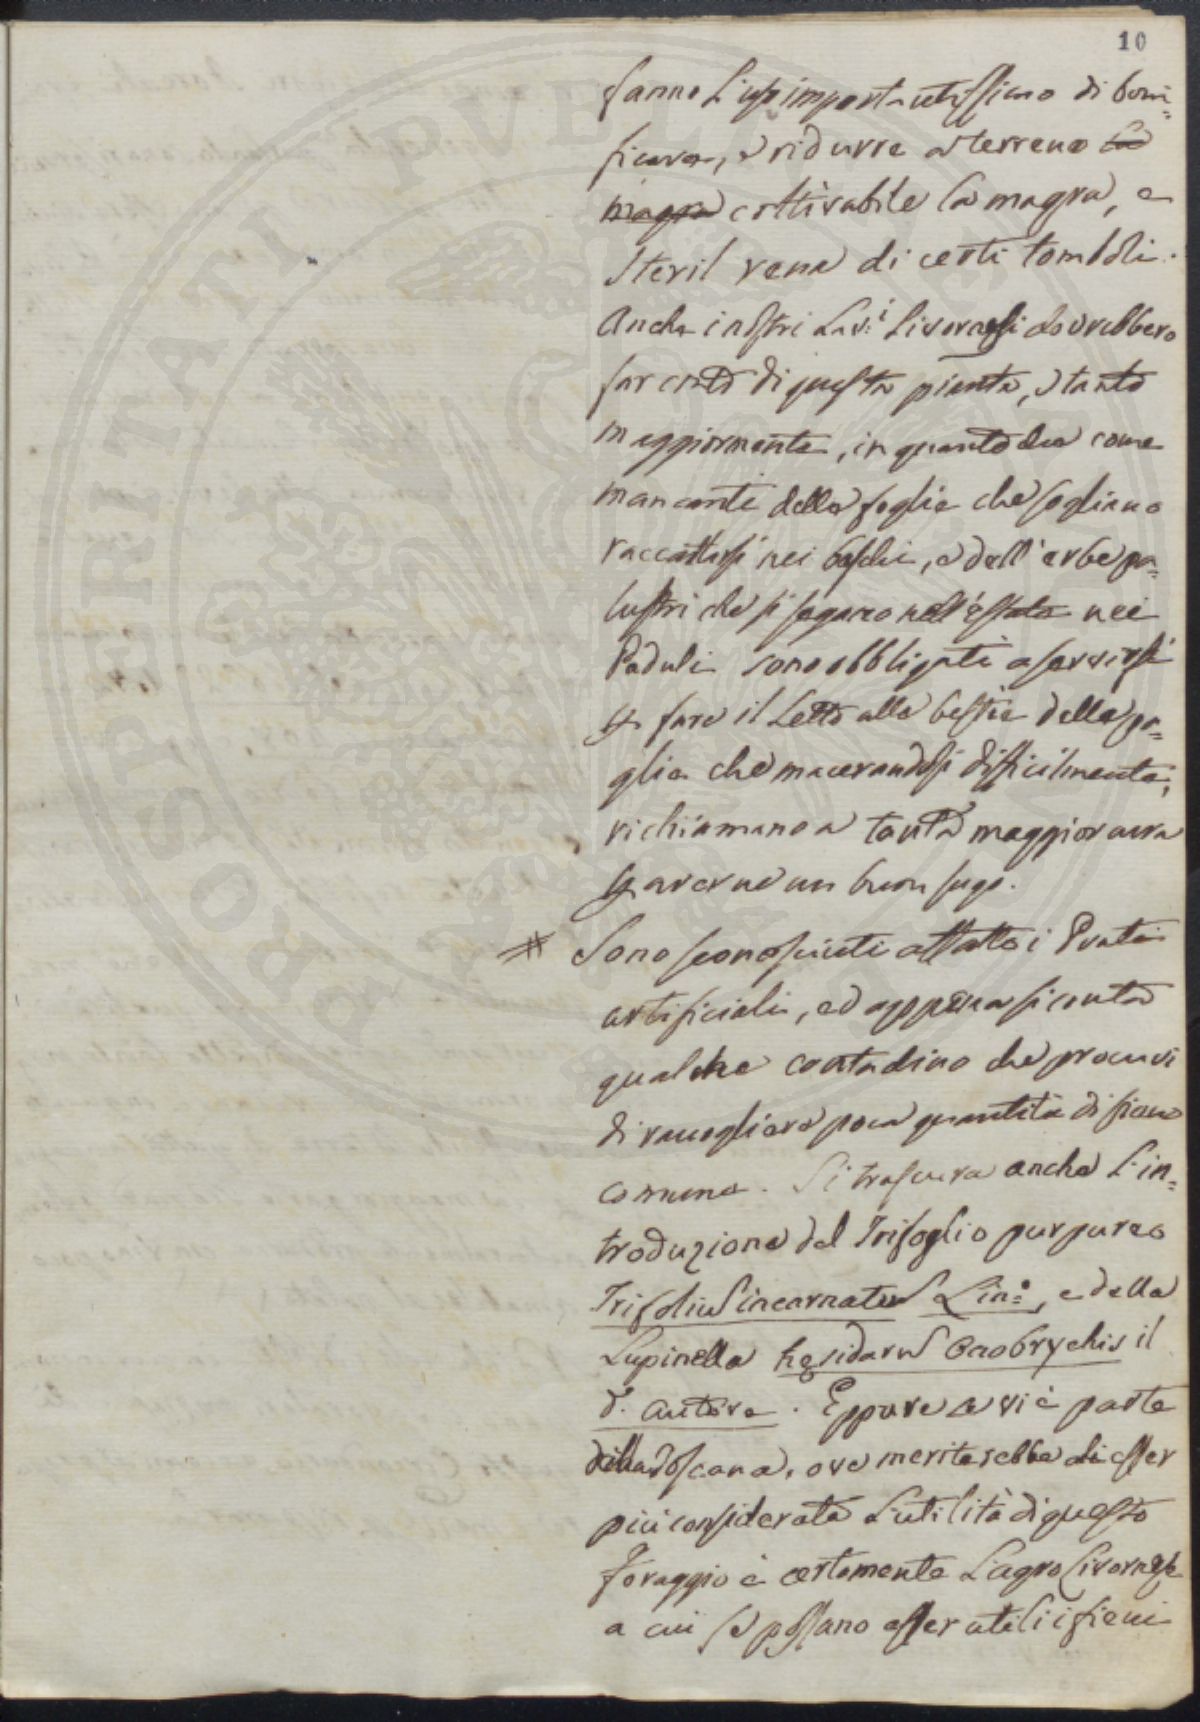 10
fanno l'uso importantissimo di boni=
ficare, e ridurre a terreno la
magra coltivabile la magra, e
steril rena di certi tomboli.
Anche i nostri Lav.i Livornesi dovrebbero
far conto di questa pianta, e tanto
maggiormente, in quanto che come
mancanti delle foglie che sogliano
raccattarsi nei boschi, e dell'erbe pa=
lustri che si segano nell'estate nei
Paduli sono obbligati a servirsi
p fare il Letto alle bestie della pa=
glia che macerandosi difficilmente,
richiamano a tanta maggior cura
p averne un buon sugo.
# Sono sconosciuti affatto i Prati
artificiali, ed appena si conta
qualche contadino che procuri
di raccogliere poca quantità di fieno
comune. Si trascura anche l'in=
troduzione del Trifoglio purpureo
Trifolium incarnatum Lin:, e della
Lupinella hesidarum Onobrychis il
d. autore. Eppure se vi è parte
della Toscana, ove meriterebbe di esser
più considerata l'utilità di questo
foraggio è certamente l'agro Livornese
a cui se possano esser utili i fieni
PROSPERITATI PVBLICAE